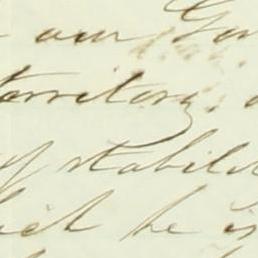 our Gov
territory,
of stabili
which he is